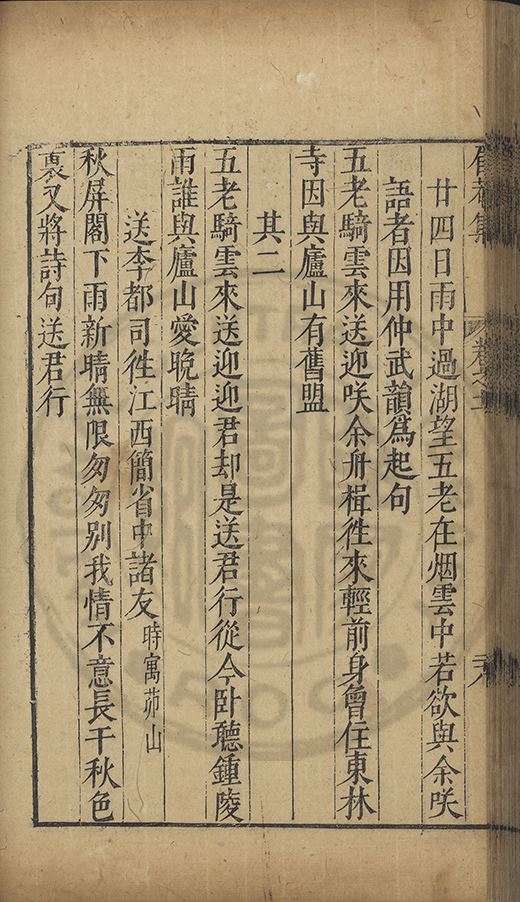 廿四日雨中過湖望五老在烟雲中若欲與余咲
語者因用仲武韻爲起句
五老騎雲來送迎咲余舟楫徃來輕前身曾住東林
寺因與廬山有舊盟
其二
五老騎雲來送迎迎君却是送君行從今卧聽鍾陵
雨誰與廬山愛晚晴
送李都司徃江西簡省中諸友時寓茆山
秋屏閣下雨新晴無限匆匆別我情不意長干秋色
裏又將詩句送君行